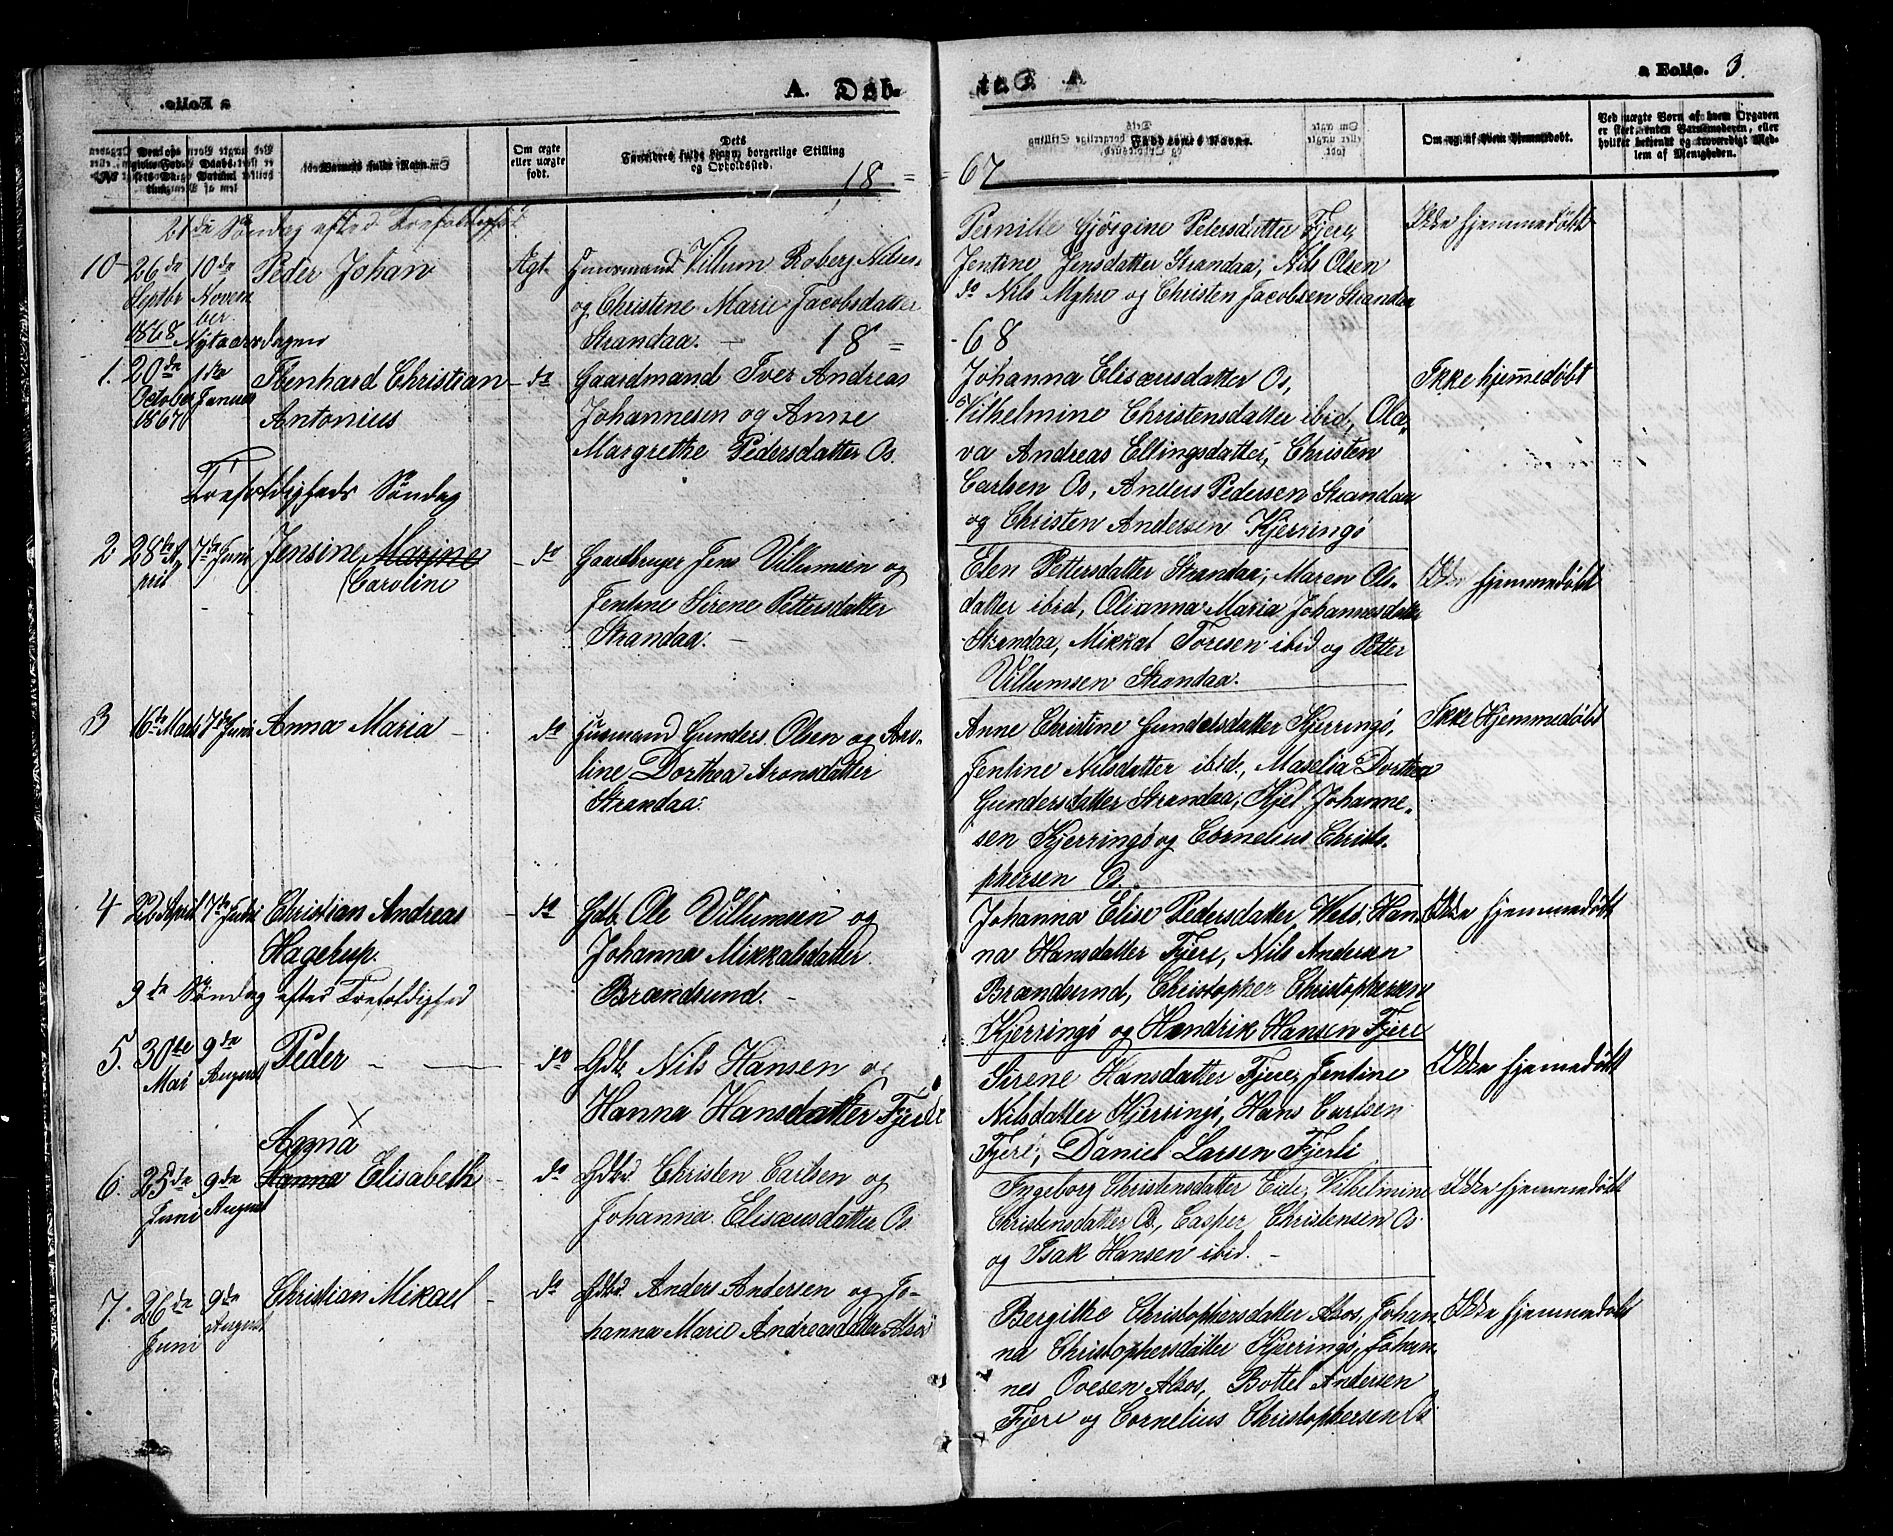 A. Døb.
a Folio. 3.
No.
Barnets fulde Navn.
Om ægte eller uægte født.
Forældres fulde Navn, borgerlige Stilling og Opholdssted.
Faddernes Navne.
Om og af hvem hjemmedøbt.
Ved uægte Børn af hvem Opgaven er skeet, enten Barnemoderen, eller hvilket bekjendt og troværdigt Medlem af Menigheden.
18 = = 67
21de Søndag efter Trefoldighed
10 26de Septbr 10de November Peder Johan Ægt. Huusmand Villum Roberg Nilsen
og Christine Marie Jacobsdatter
Strandaa. —
Pernille Gjørgine Petersdatter Fjere,
Jentine Jensdatter Strandaa, Nils Olsen
do Nils Myhre og Christen Jacobsen Strandaa
Ikke hjemmedøbt
18 = - 68
1868 Nytaarsdagen
1. 20de October 1867 1de Januar Ebenhard Christian Antonius — do Gaardmand Iver Andreas
Johannesen og Anne
Margrethe Pedersdatter Os.
Johanna Elisæusdatter Os,
Vilhelmine Christensdatter ibid, Ola-
va Andreas Ellingsdatter, Christen
Carlsen Os, Anders Pedersen Strandaa
og Christen Andersen Kjerringø
Ikke hjemmedøbt
Trefoldigheds Søndag
2 28de April 7de Juni Jensine Marine
Caroline
do Gaardbruger Jens Villumsen og
Jentine Sirene Pettersdatter
Strandaa. —
Elen Pettersdatter Strandaa, Maren Ols-
datter ibid, Olianna Maria Johannesdatter
Strandaa, Mikkal Toresen ibid og Petter
Villumsen Strandaa.
Ikke hjemmedøbt
3 16de Marts 7de Juni Anna Maria — do Husmand Gunders Olsen og Aro-
line Dorthea Aronsdatter
Strandaa.
Anne Christine Gundersdatter Kjerringø,
Jentine Nilsdatter ibid., Maselia Dorthea
Gundersdatter Strandaa, Kjel Johanne-
sen Kjerringø og Cornelius Christo-
phersen Os.
Ikke Hjemmedøbt
4 22 April 7de Juni Christian Andreas
Hagerup.
— do Gdb. Ole Villumsen og
Johanna Mikkalsdatter
Brændsund. —
Johanna Elise Pedersdatter Han-
na Hansdatter Fjere, Nils Andersen
Brændsund, Christopher Christophersen
Kjerringø og Hendrik Hansen Fjere
Ikke hjemmedøbt
9de Søndag efter Trefoldighed
5. 30te Mai 9de August Peder — — do Gdb. Nils Hansen og
Hanna Hansdatter Fjere
Sirene Hansdatter Fjere, Jentine
Nilsdatter Kjerringø, Hans Carlsen
Fjere, Daniel Larsen Fjerli
Ikke hjemmedøbt
6. 25de Juni 9de August Agnna
Hanna Elisabeth — do Gdbd. Christen Carlsen og
Johanna Elisæusdatter Os.
Ingeborg Christensdatter Eide, Vilhelmine
Christensdatter Os, Casper Christensen Os
og Isak Hansen ibid. —
Ikke hjemmedøbt
7. 26de Juni 9de August Christian Mikael — do Gdbd. Anders Andersen og Jo-
hanna Marie Andreasdatter Alsos
Bergitte Christophersdatter Alsos, Johan-
na Christophersdatter Kjerringø, Johan-
nes Ovesen Alsos, Bottel Andersen
Fjere og Cornelius Christophersen Os
Ikke hjemmedøbt